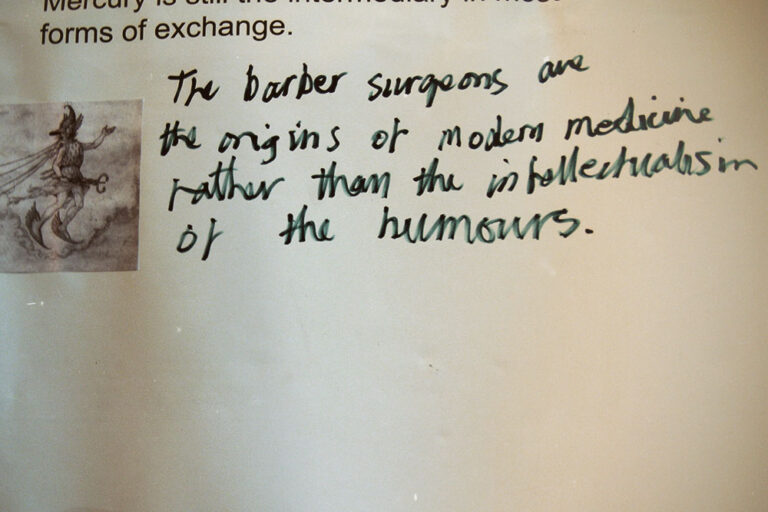 Mercury is still the intermediary in most
forms of exchange.
The barber surgeons are
the origins of modern medicine
rather than the intellectualism
of the humours.